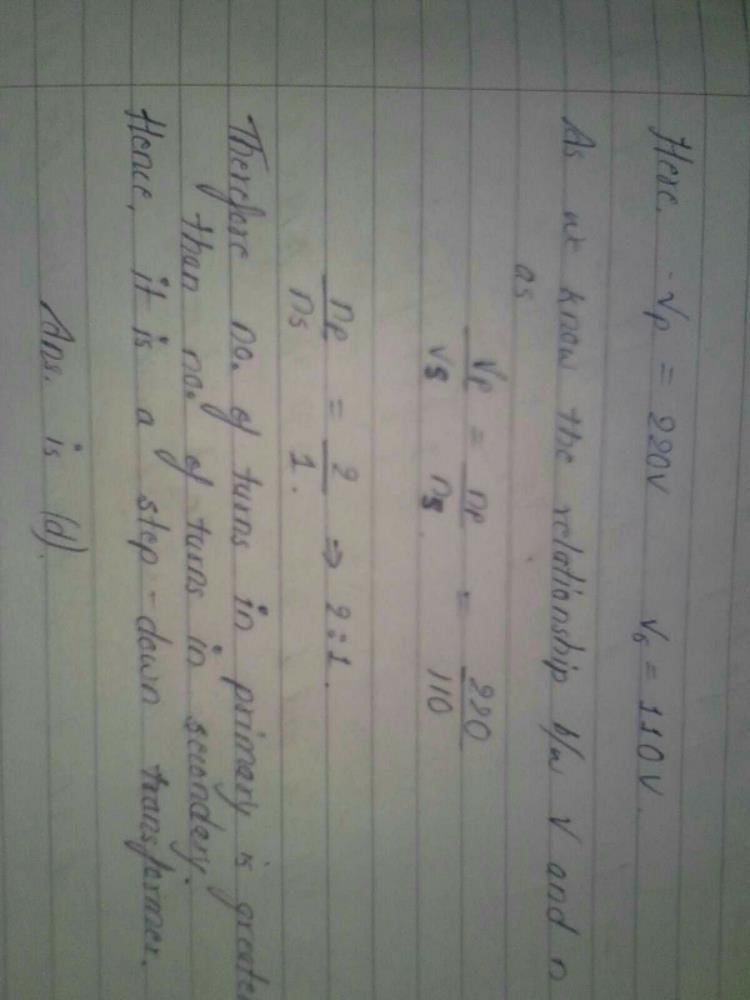 Here, Vp = 220V Vs = 110V.
As we know the relationship b/w V and n
as
Vp/Vs = np/ns = 220/110
np/ns = 2/1. ⇒ 2:1.
Therefore no. of turns in primary is greater
than no. of turns in secondery.
Hence, it is a step-down transformer.
Ans. is (d).